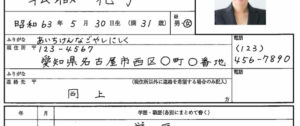 昭和 63 年 5 月 30 日生 (満 31 歳) 男 女
ふりがな あいちけんなごやしにしく
電話
現住所 〒123-4567
(123)
愛知県名古屋市西区〇町〇番地
456-7890
ふりがな
(現住所以外に連絡を希望する場合のみ記入)
電話
連絡先 〒
同上
年 月 学歴・職歴(各別にまとめて書く)